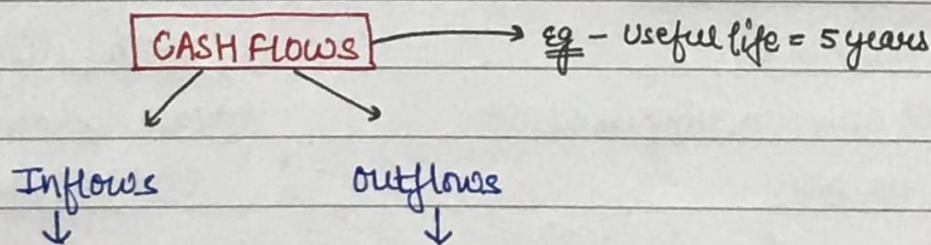 CASH FLOWS → eg - Useful life = 5 years
Inflows outflows